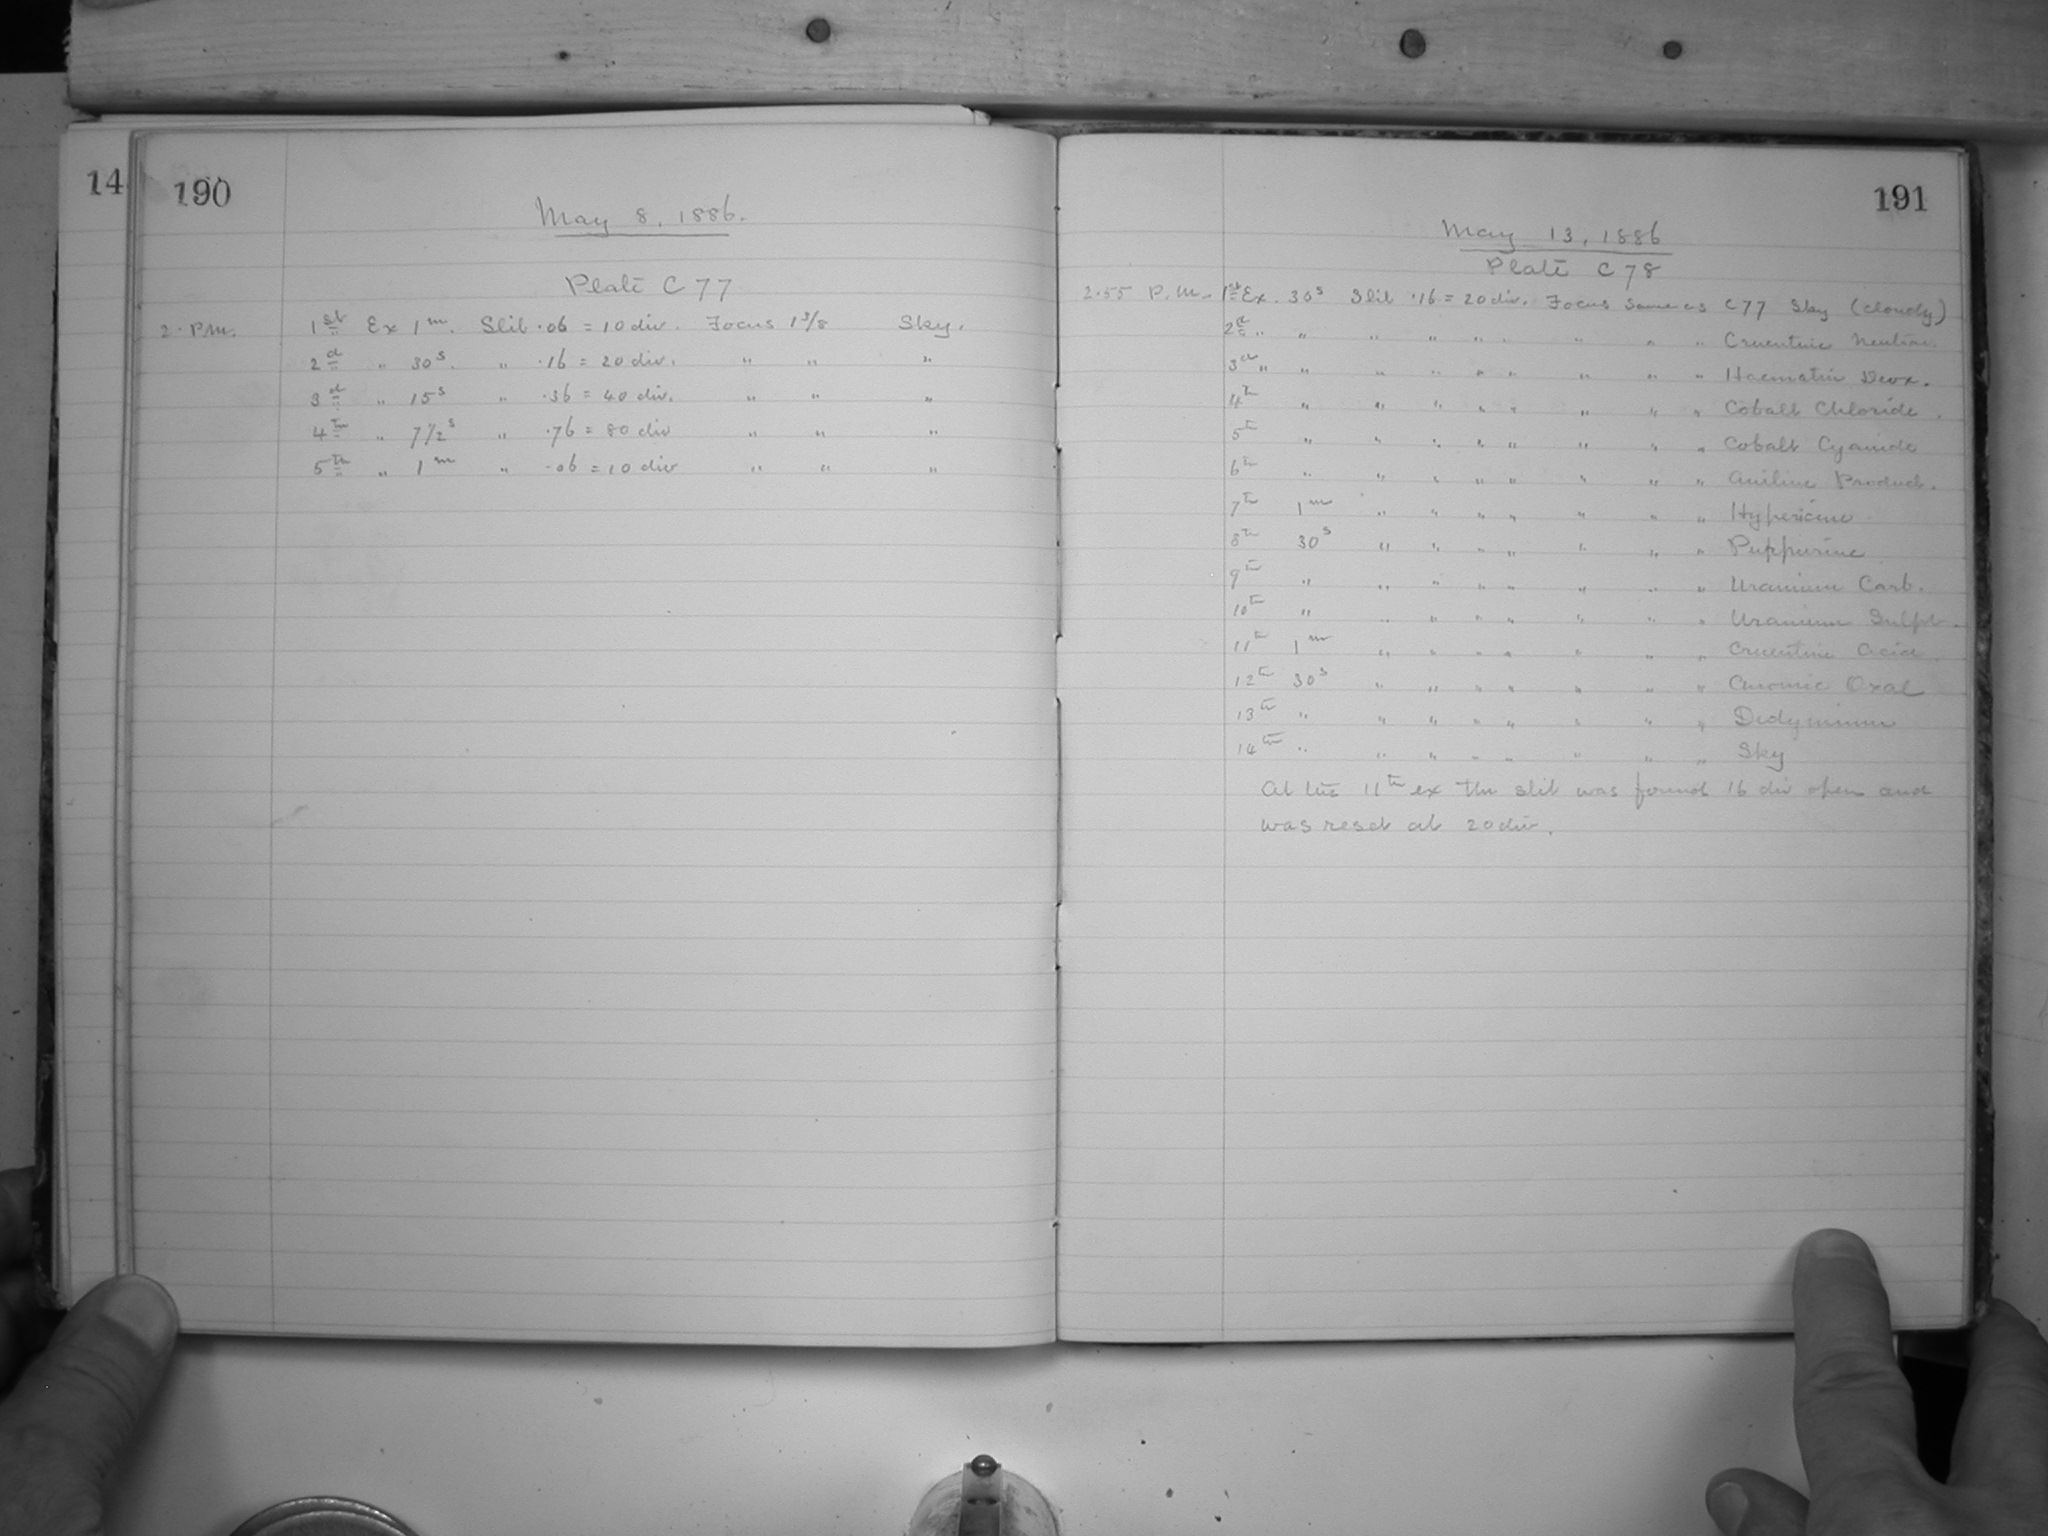 14
190
May 8, 1886.
Plate C 77
2. P.M. 1st Ex 1m. Slit .06 = 10 div. Focus 1 3/8 Sky.
2d " 30s. " .16 = 20 div. " " "
3d " 15s " .36 = 40 div. " " "
4th " 7 1/2s " .76 = 80 div " " "
5th " 1m " .06 = 10 div " " "
191
May 13, 1886
Plate C 78
2.55 P.M. 1st Ex. 30s Slit .16 = 20 div. Focus same as C 77 Sky (cloudy)
2d " " " " " " " " " Cruentine Neutral
3d " " " " " " " " " Haematin Deox.
4th " " " " " " " " Cobalt Chloride.
5th " " " " " " " " Cobalt Cyanide
6th " " " " " " " " Aniline Product.
7th 1m " " " " " " " Hypericine
8th 30s " " " " " " " Puppurine
9th " " " " " " " " Uranium Carb.
10th " " " " " " " " Uranium Sulph.
11th 1m " " " " " " " Cruentine Acid.
12th 30s " " " " " " " Cromic Oxal
13th " " " " " " " " Didymium
14th " " " " " " " " Sky
At the 11th ex the slit was found 16 div open and
was reset at 20 div.